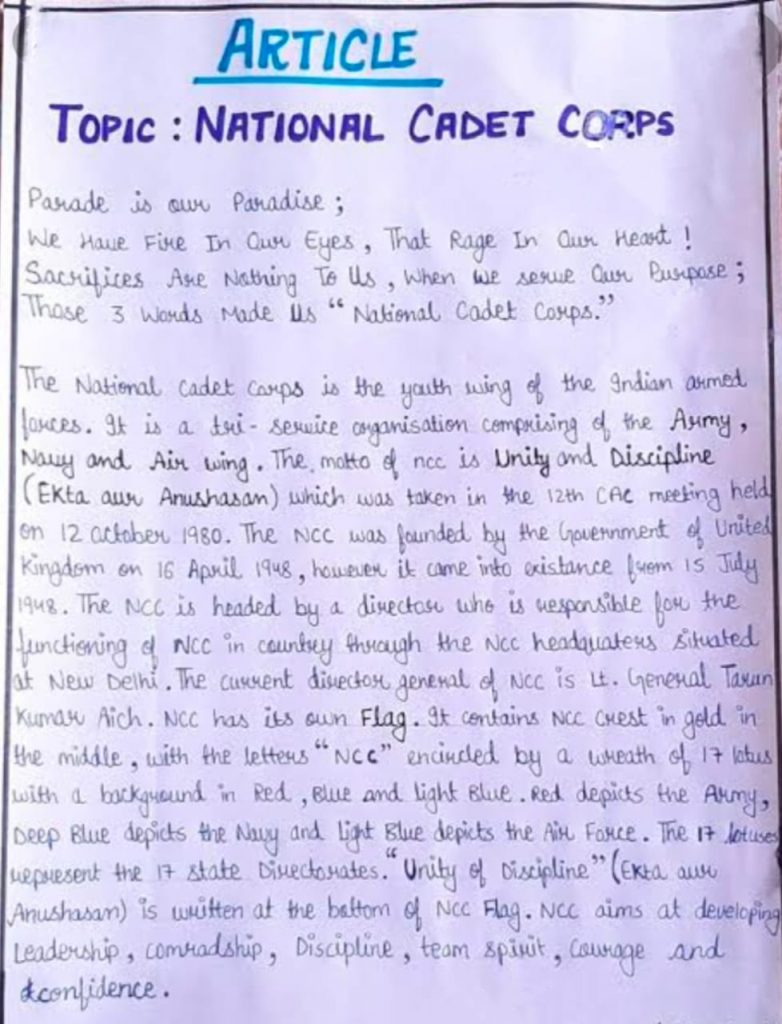 ARTICLE
TOPIC : NATIONAL CADET CORPS
Parade is our Paradise ;
We Have Fire In Our Eyes , That Rage In Our Heart !
Sacrifices Are Nothing To Us , When we serve Our Purpose ;
Those 3 Words Made Us “ National Cadet Corps.”
The National Cadet Corps is the youth wing of the Indian armed
forces. It is a tri- service organisation comprising of the Army,
Navy and Air wing. The motto of ncc is Unity and Discipline
(Ekta aur Anushasan) which was taken in the 12th CAC meeting held
on 12 october 1980. The NCC was founded by the Government of United
Kingdom on 16 April 1948, however it came into existance from 15 July
1948. The NCC is headed by a director who is responsible for the
functioning of NCC in country through the NCC headquaters situated
at New Delhi. The current director general of NCC is Lt. General Tarun
Kumar Aich. NCC has its own Flag. It contains NCC Crest in gold in
the middle, with the letters “NCC” encircled by a wreath of 17 lotus
with a background in Red, Blue and light Blue. Red depicts the Army,
Deep Blue depicts the Navy and light Blue depicts the Air Force. The 17 lotuses
represent the 17 state Directorates. “Unity of Discipline” (Ekta aur
Anushasan) is written at the bottom of NCC Flag. NCC aims at developing
Leadership, comradship, Discipline, team spirit, Courage and
confidence.